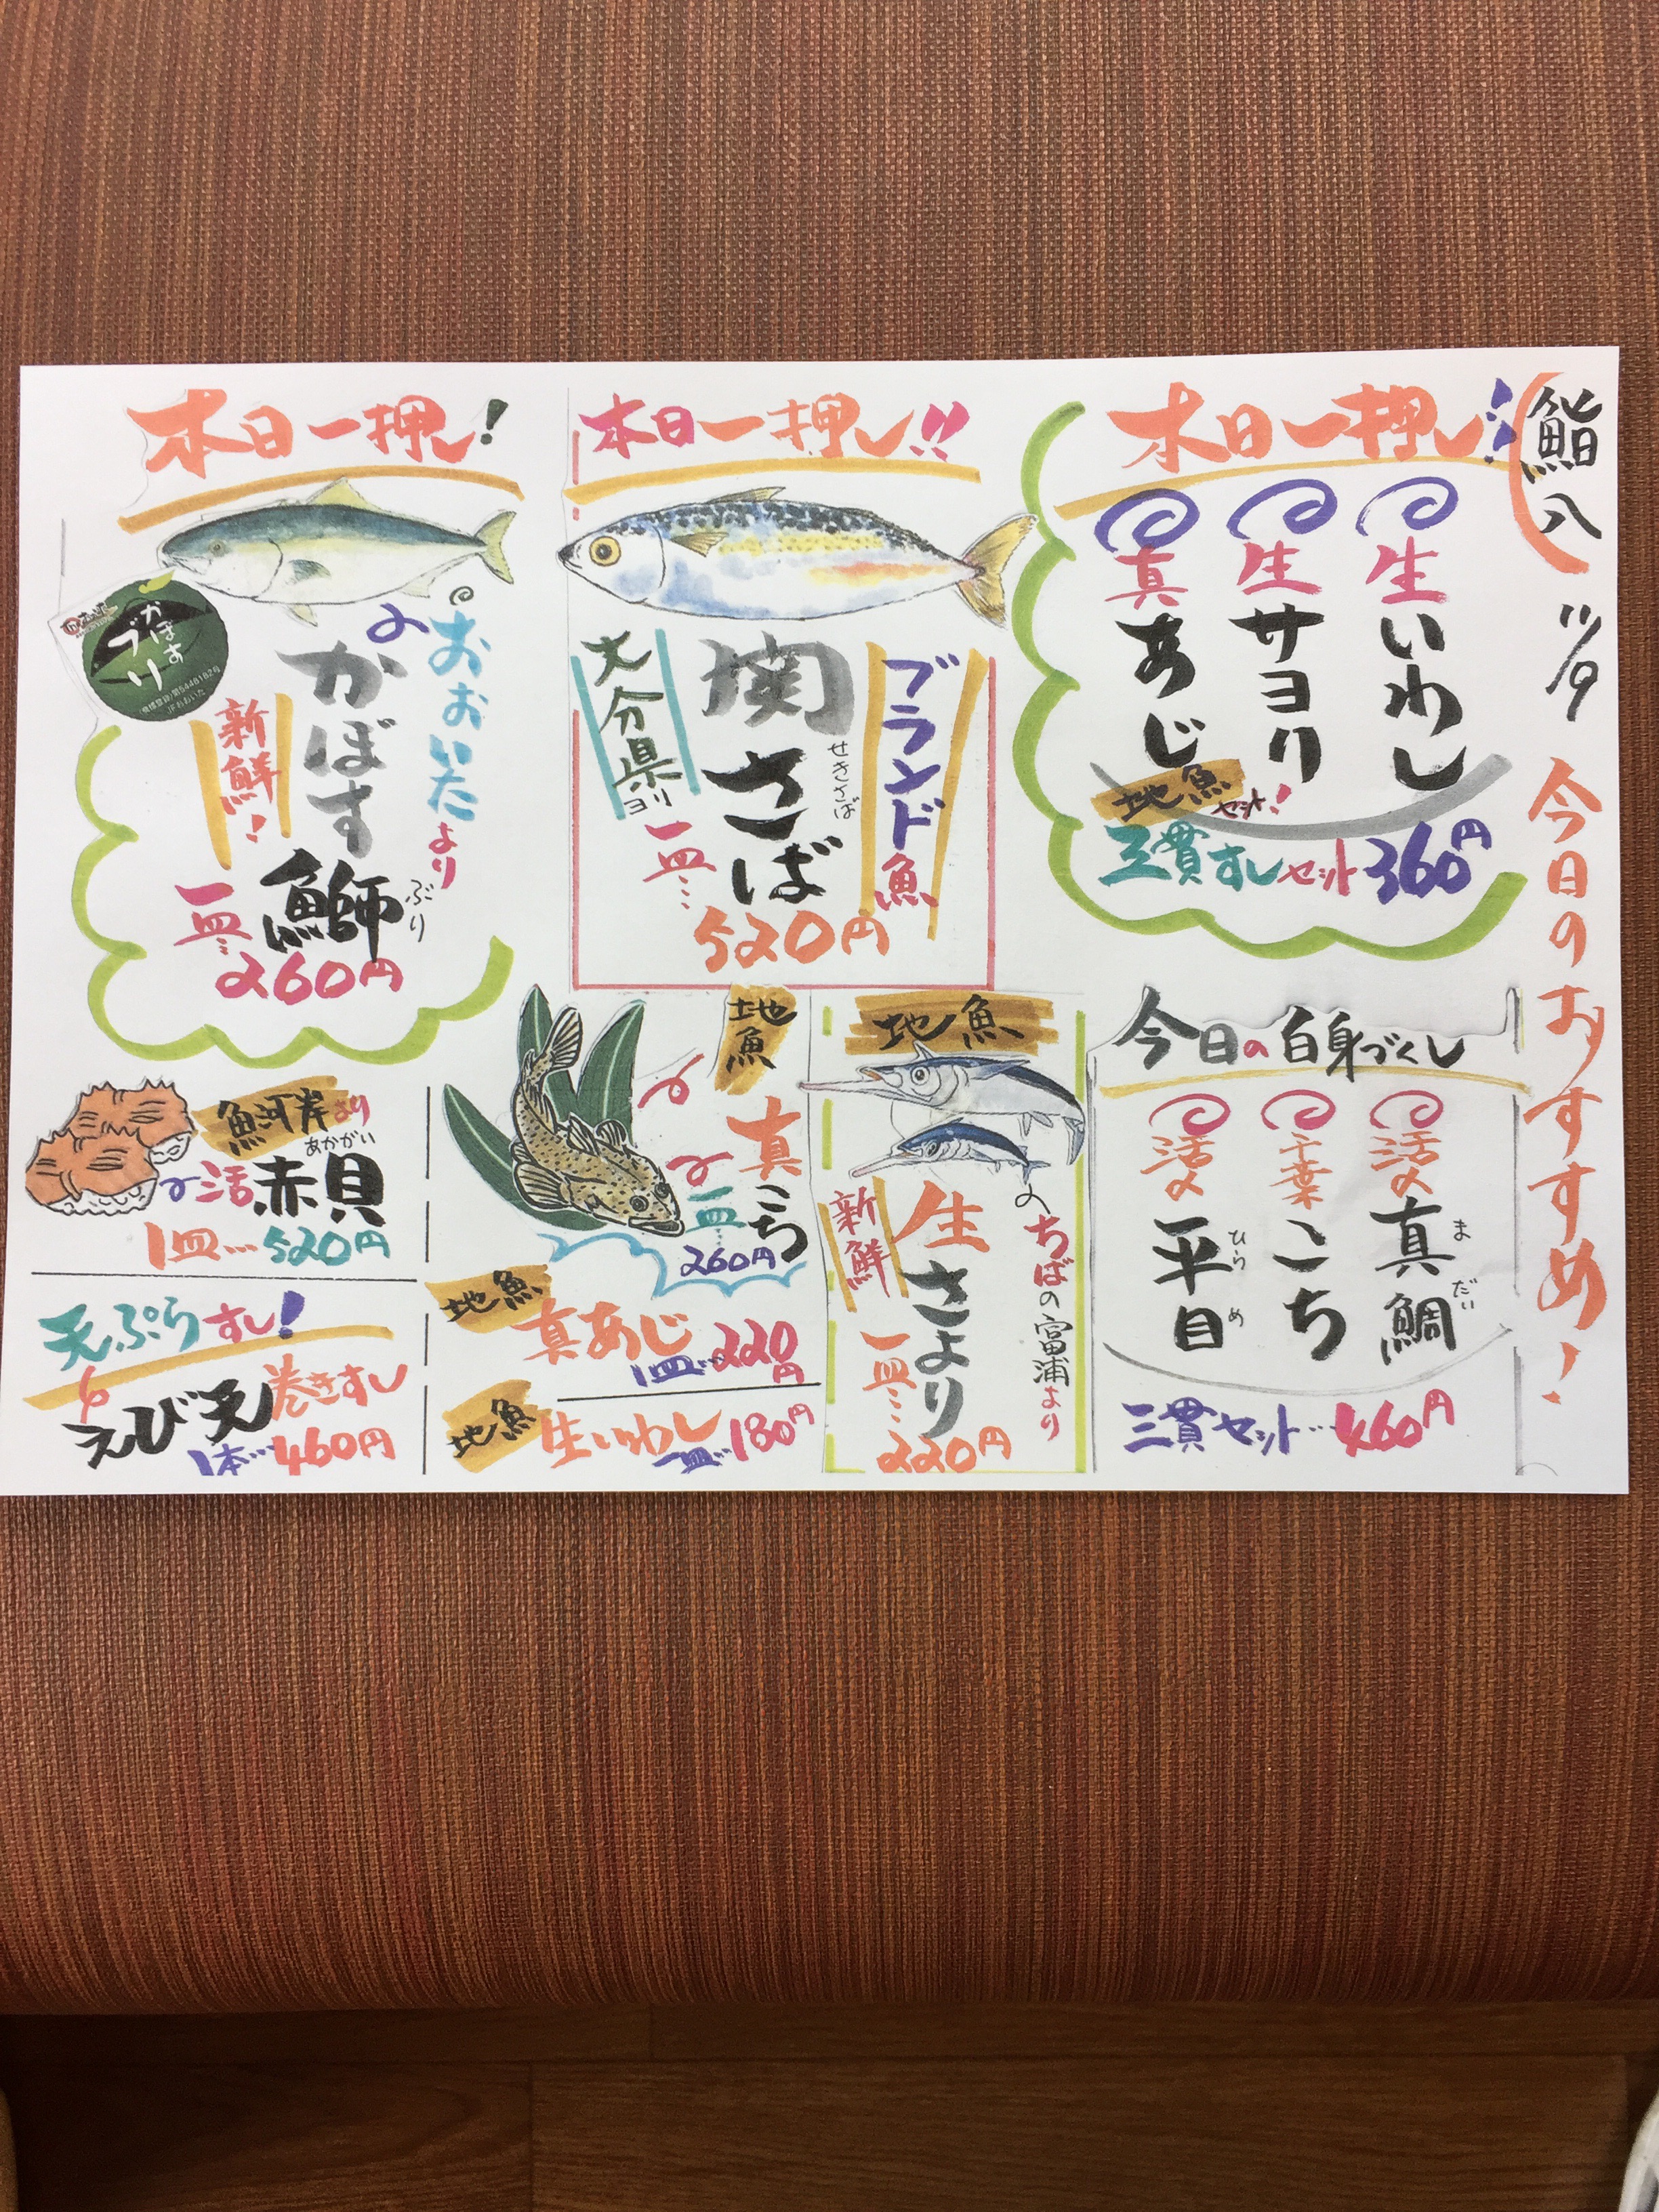 鮨八
11/9
今日のおすすめ!
本日一押し!!
生いわし
生サヨリ
真あじ
地魚セット!
三貫すしセット360円
本日一押し!!
ブランド魚
関さば
せきさば
大分県ヨリ
一皿…
520円
本日一押し!
おおいたより
かぼす鰤
ぶり
新鮮!
一皿…
260円
かぼすブリ
今日の白身づくし
活〆真鯛
まだい
千葉こち
活〆平目
ひらめ
三貫セット…460円
地魚
ちばの富浦より
生さより
新鮮
一皿…
220円
地魚
真こち
一皿…
260円
地魚
真あじ
1皿…220円
地魚
生いわし
一皿…180円
魚河岸より
あかがい
活赤貝
1皿…520円
天ぷらすし!
えび天巻きすし
1本…460円